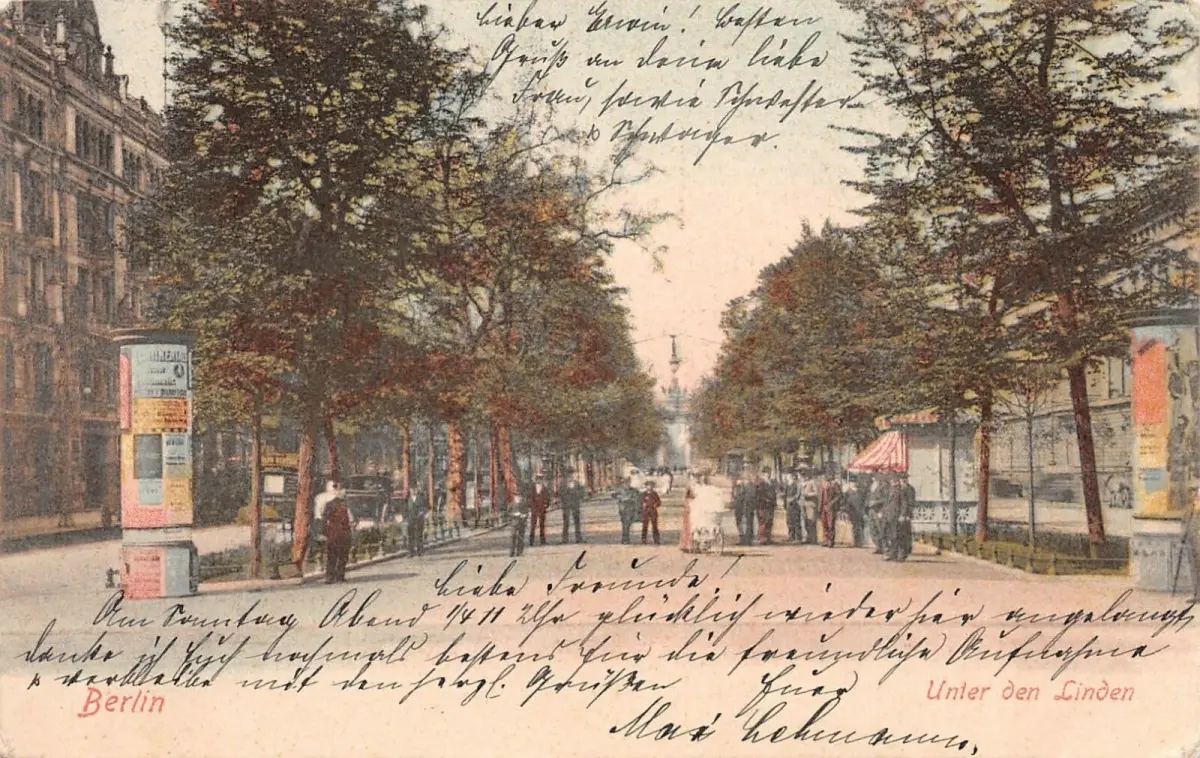 Lieber Erwin! Besten
Gruß an deine liebe
Frau, sowie Schwester
& Schwager.
Liebe Freunde!
Am Sonntag Abend 1/4 11 Uhr glücklich wieder hier angelangt,
danke ich Euch nochmals bestens für die freundliche Aufnahme
& verbleibe mit den herzl. Grüßen Euer
Max Lehmann.
Berlin
Unter den Linden